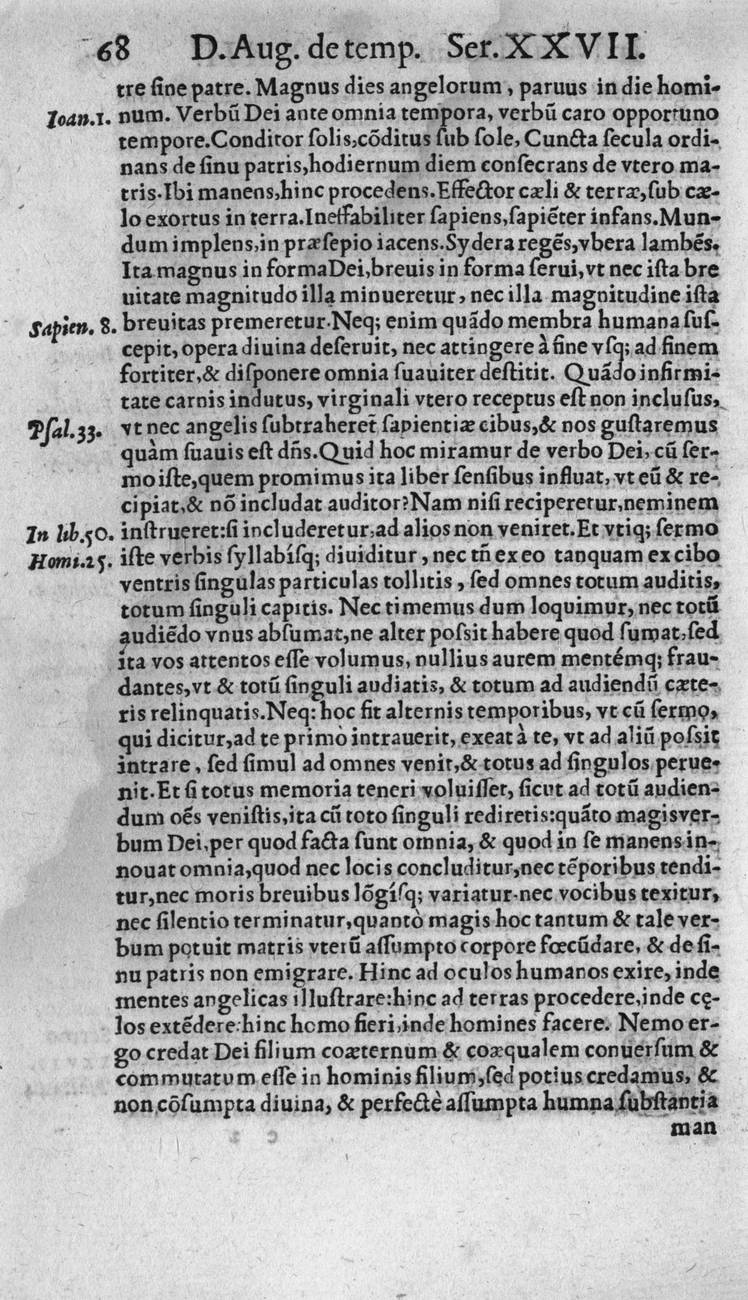 68 D. Aug. de temp. Ser. XXVII.
tre ſine patre. Magnus dies angelorum, paruus in die homi-
Ioan.1. num. Verbũ Dei ante omnia tempora, verbũ caro opportuno
tempore. Conditor ſolis, cõditus ſub ſole, Cuncta ſecula ordi-
nans de ſinu patris, hodiernum diem conſecrans de vtero ma-
tris. Ibi manens, hinc procedens. Effector cæli & terræ, ſub cæ-
lo exortus in terra. Ineffabiliter ſapiens, ſapiẽter infans. Mun-
dum implens, in præſepio iacens. Sydera regẽs, vbera lambẽs.
Ita magnus in forma Dei, breuis in forma ſerui, vt nec iſta bre
uitate magnitudo illa minueretur, nec illa magnitudine iſta
Sapien. 8. breuitas premeretur. Neq; enim quãdo membra humana ſuſ-
cepit, opera diuina deſeruit, nec attingere à fine vſq; ad finem
fortiter, & diſponere omnia ſuauiter deſtitit. Quãdo infirmi-
tate carnis indutus, virginali vtero receptus eſt non incluſus,
Pſal.33. vt nec angelis ſubtraheret̃ ſapientiæ cibus, & nos guſtaremus
quàm ſuauis eſt dñs. Quid hoc miramur de verbo Dei, cũ ſer-
mo iſte, quem promimus ita liber ſenſibus influat, vt eũ & re-
cipiat, & nõ includat auditor? Nam niſi reciperetur, neminem
In lib.50. inſtrueret: ſi includeretur, ad alios non veniret. Et vtiq; ſermo
Homi.25. iſte verbis ſyllabíſq; diuiditur, nec tñ ex eo tanquam ex cibo
ventris ſingulas particulas tollitis, ſed omnes totum auditis,
totum ſinguli capitis. Nec timemus dum loquimur, nec totũ
audiẽdo vnus abſumat, ne alter poſsit habere quod ſumat, ſed
ita vos attentos eſſe volumus, nullius aurem mentémq; frau-
dantes, vt & totũ ſinguli audiatis, & totum ad audiendũ cæte-
ris relinquatis. Neq: hoc fit alternis temporibus, vt cũ ſermo,
qui dicitur, ad te primò intrauerit, exeat à te, vt ad aliũ poſsit
intrare, ſed ſimul ad omnes venit, & totus ad ſingulos perue-
nit. Et ſi totus memoria teneri voluiſſet, ſicut ad totũ audien-
dum oẽs veniſtis, ita cũ toto ſinguli rediretis: quãto magis ver-
bum Dei, per quod facta ſunt omnia, & quod in ſe manens in-
nouat omnia, quod nec locis concluditur, nec tẽporibus tendi-
tur, nec moris breuibus lõgíſq; variatur. nec vocibus texitur,
nec ſilentio terminatur, quantò magis hoc tantum & tale ver-
bum potuit matris vterũ aſſumpto corpore fœcũdare, & de ſi-
nu patris non emigrare. Hinc ad oculos humanos exire, inde
mentes angelicas illuſtrare: hinc ad terras procedere, inde cę-
los extẽdere: hinc homo fieri, inde homines facere. Nemo er-
go credat Dei filium coæternum & coæqualem conuerſum &
commutatum eſſe in hominis filium, ſed potius credamus, &
non cõſumpta diuina, & perfectè aſſumpta humna ſubſtantia
man